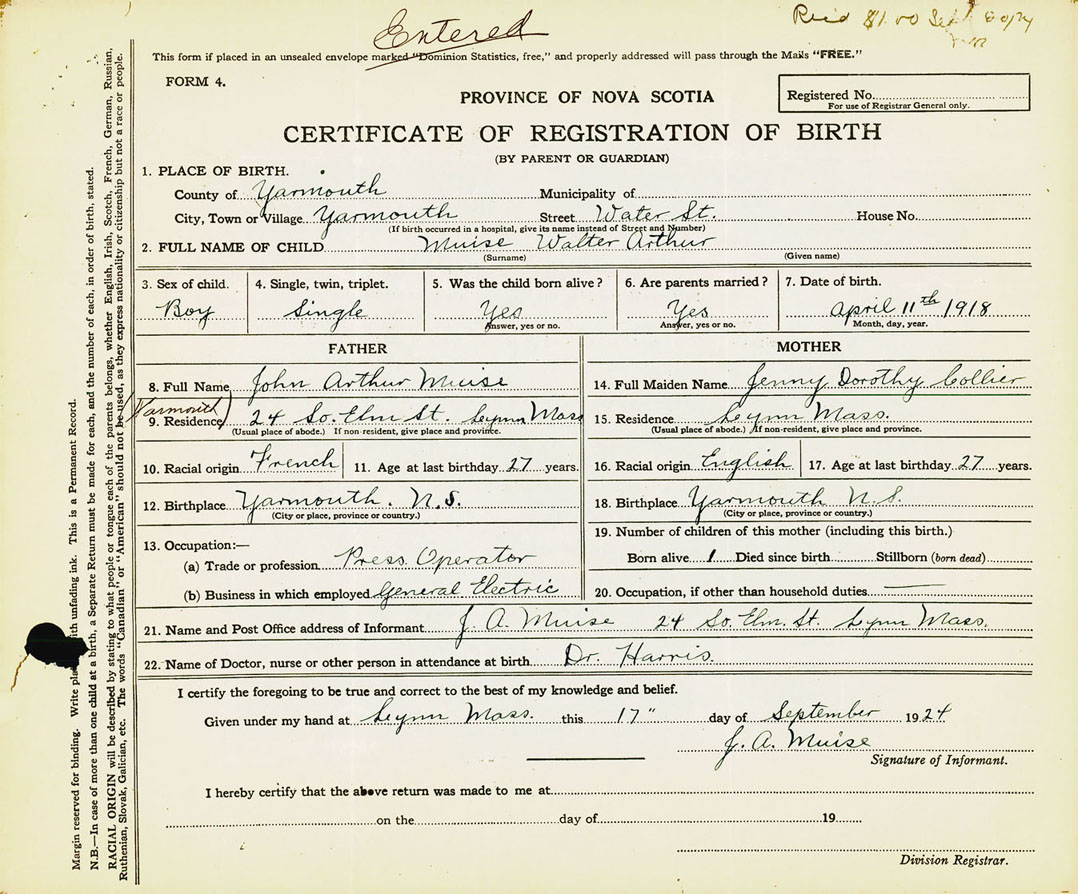 Entered
Recd $1.00 Sept
This form if placed in an unsealed envelope marked "Dominion Statistics, free," and properly addressed will pass through the Mails "FREE."
FORM 4.
PROVINCE OF NOVA SCOTIA
Registered No.
For use of Registrar General only.
CERTIFICATE OF REGISTRATION OF BIRTH
(BY PARENT OR GUARDIAN)
1. PLACE OF BIRTH.
County of Yarmouth Municipality of
City, Town or Village Yarmouth Street Water St. House No.
(If birth occurred in a hospital, give its name instead of Street and Number)
2. FULL NAME OF CHILD Muise Walter Arthur
(Surname) (Given name)
3. Sex of child. 4. Single, twin, triplet. 5. Was the child born alive? 6. Are parents married? 7. Date of birth.
Boy Single Yes Yes April 11th 1918
Answer, yes or no. Answer, yes or no. Month, day, year.
FATHER MOTHER
8. Full Name John Arthur Muise 14. Full Maiden Name Jenny Dorothy Collier
(Yarmouth)
9. Residence 24 So. Elm St. Lynn Mass 15. Residence Lynn Mass.
(Usual place of abode.) If non-resident, give place and province. (Usual place of abode.) If non-resident, give place and province.
10. Racial origin French 11. Age at last birthday 27 years. 16. Racial origin English 17. Age at last birthday 27 years.
12. Birthplace Yarmouth. N.S. 18. Birthplace Yarmouth N.S.
(City or place, province or country.) (City or place, province or country.)
13. Occupation:— 19. Number of children of this mother (including this birth.)
(a) Trade or profession Press Operator Born alive 1 Died since birth Stillborn (born dead)
(b) Business in which employed General Electric 20. Occupation, if other than household duties —
21. Name and Post Office address of Informant J. A. Muise 24 So. Elm. St. Lynn Mass.
22. Name of Doctor, nurse or other person in attendance at birth Dr. Harris.
I certify the foregoing to be true and correct to the best of my knowledge and belief.
Given under my hand at Lynn Mass. this 17" day of September 1924
J. A. Muise
Signature of Informant.
I hereby certify that the above return was made to me at
on the day of 19
Division Registrar.
Margin reserved for binding. Write ith unfading ink. This is a Permanent Record.
N.B.—In case of more than one child at a birth, a Separate Return must be made for each, and the number of each, in order of birth, stated.
RACIAL ORIGIN will be described by stating to what people or tongue each of the parents belongs, whether English, Irish, Scotch, French, German, Russian,
Ruthenian, Slovak, Galician, etc. The words "Canadian" or "American" should not be used, as they express nationality or citizenship but not a race or people.